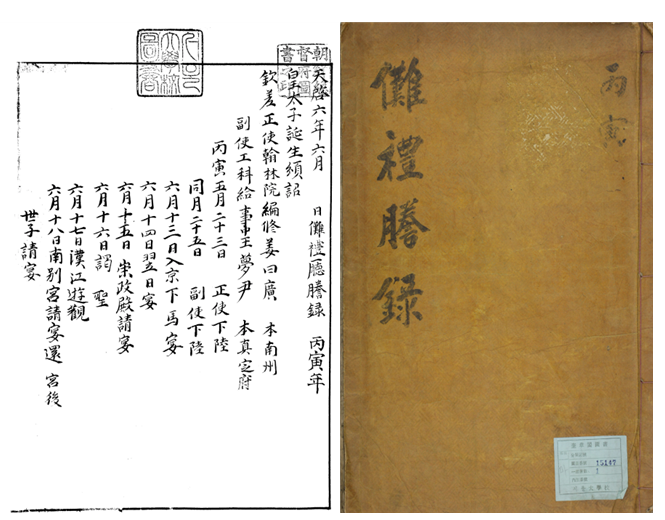 丙寅
儺禮謄録
15147
1
天啓六年六月 日儺禮廳謄録 丙寅年
皇太子誕生頒詔
欽差正使翰林院編修姜曰廣 本南州
副使工科給事中王夢尹 本真定府
丙寅五月二十三日 正使下陸
同月二十五日 副使下陸
六月十三日入京下馬宴
六月十四日翌日宴
六月十五日崇政殿請宴
六月十六日謁 聖
六月十七日漢江遊觀
六月十八日南別宮請宴還 宮後
世子請宴